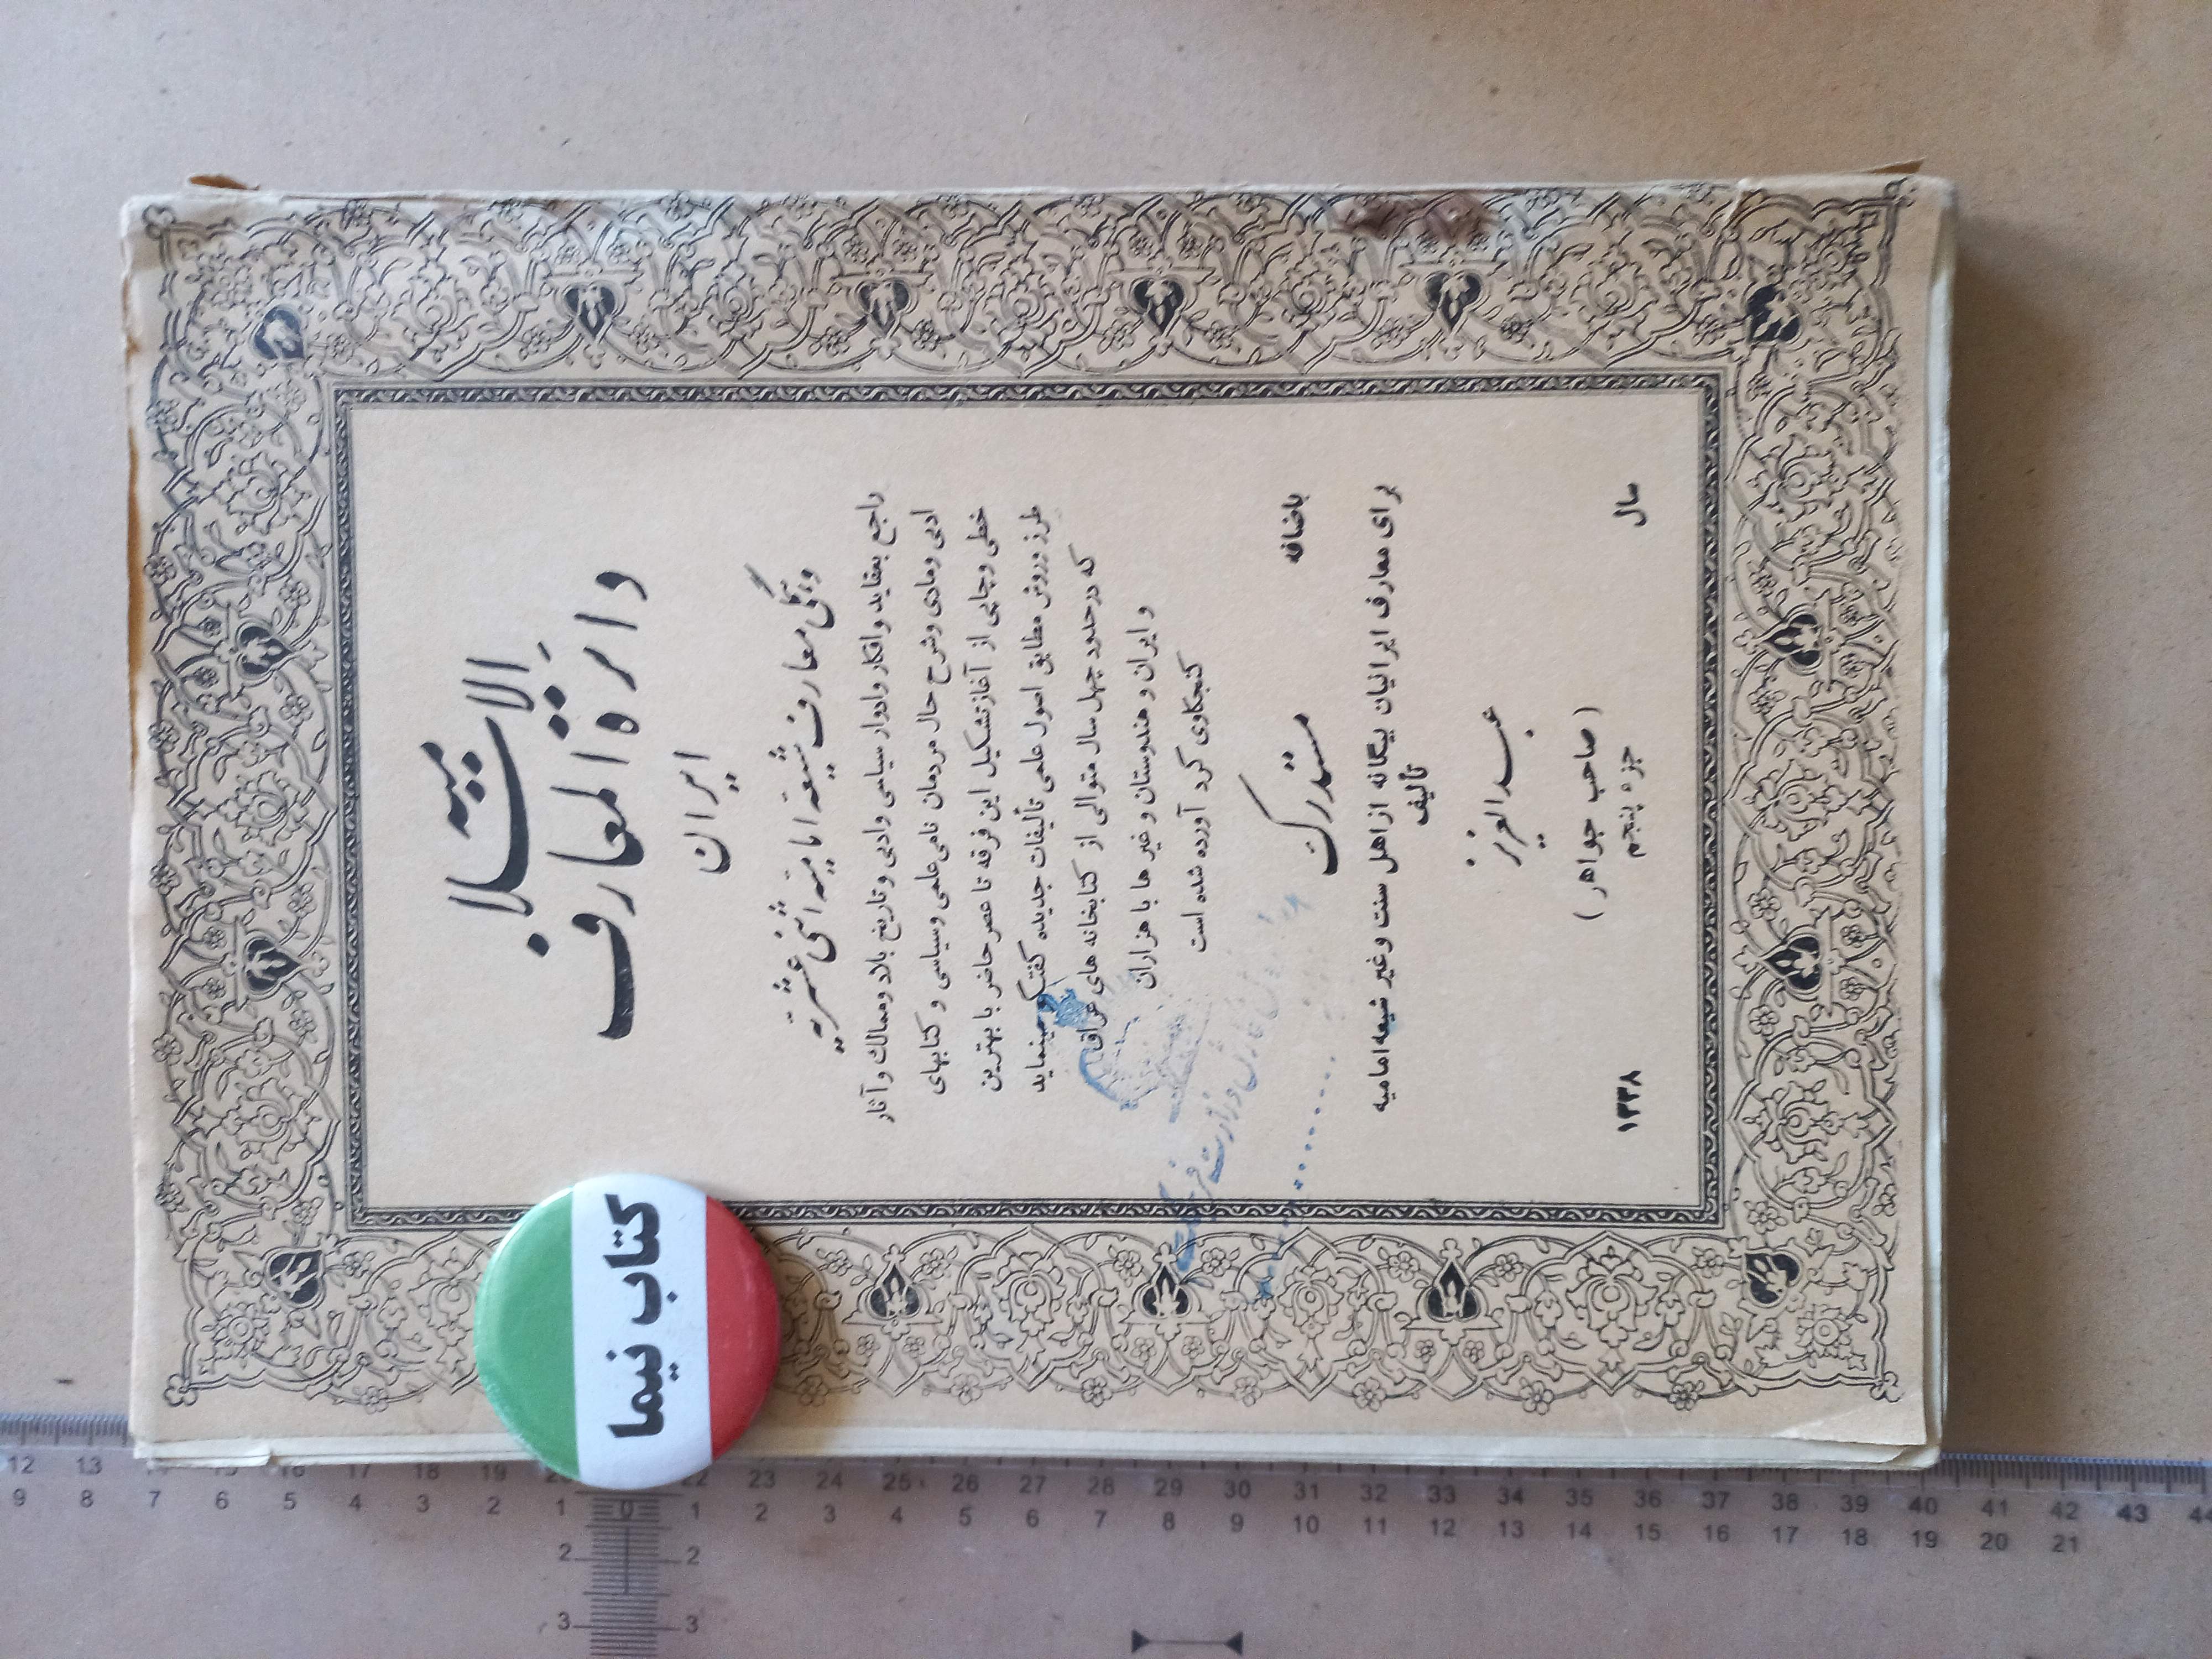 دائرة المعارف
الاسلامیه
ایران
و همگی معارف شیعه امامیه اثنی عشریه
راجع بعقاید و افکار و ادوار سیاسی و ادبی و تاریخ بلاد و ممالک و آثار
ادبی و مادی و شرح حال مردمان نامی علمی و سیاسی و کتابهای
خطی و چاپی از آغاز تشکیل این فرقه تا عصر حاضر با بهترین
طرز و روش مطابق اصول علمی تألیفات جدیده گفتگو مینماید
که در حدود چهل سال متوالی از کتابخانه های عراق
و ایران و هندوستان و غیر ها با هزاران
کنجکاوی گرد آورده شده است
باضافه
مستدرک
برای معارف ایرانیان بیگانه از اهل سنت و غیر شیعه امامیه
تألیف
عبدالعزیز
(صاحب جواهر)
جزء پنجم
سال
۱۳۳۸
کتاب نیما
12 13 17 18 19 22 23 24 25 26 27 28 29 30 31 32 33 34 35 36 37 38 39 40 41 42 43 44
9 8 7 6 5 4 3 2 1 0 1 2 3 4 5 6 7 8 9 10 11 12 13 14 15 16 17 18 19 20 21
2 2
3 3